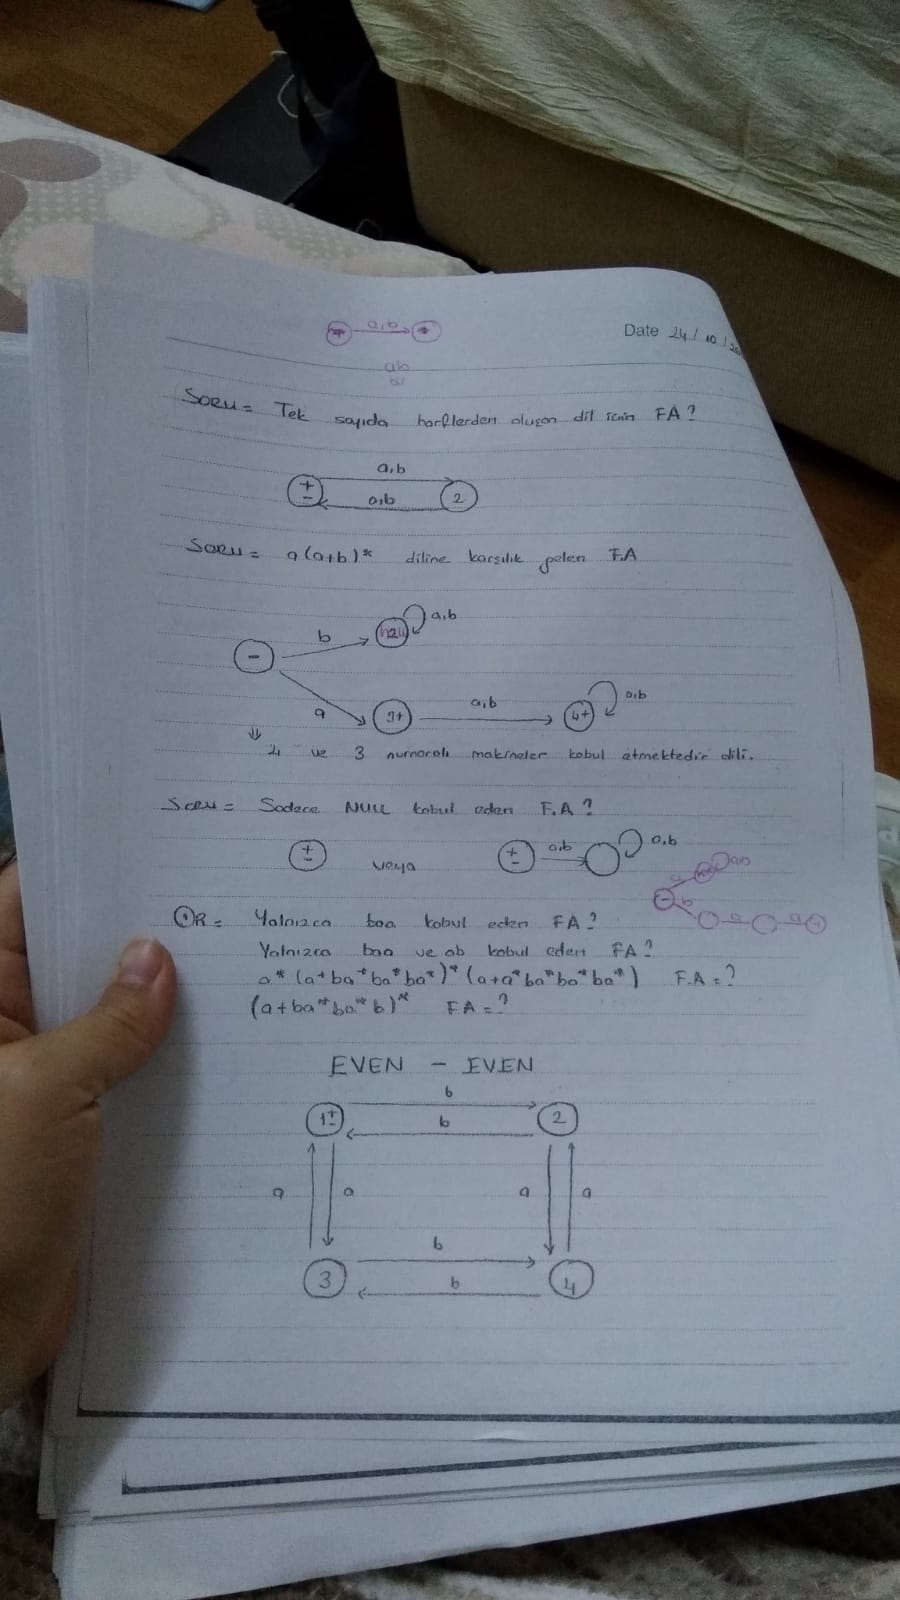 a,b
Date 24/10/20
ab
Soru = Tek sayıda harflerden oluşan dil için FA?
± a,b a,b 2
Soru = a(a+b)* diline karşılık gelen FA
- b a,b
a 3+ a,b 4+ a,b
4 ve 3 numaralı makineler kabul etmektedir dili.
Soru = Sadece NULL kabul eden F.A?
± veya ± a,b a,b
- a a,b
b a a +
ÖR = Yalnızca baa kabul eden FA?
Yalnızca baa ve ab kabul eden FA?
a* (a+ba*ba*ba*)* (a+a*ba*ba*ba*) F.A = ?
(a+ba*ba*b)* FA = ?
EVEN - EVEN
1± b b 2
a a a a
3 b b 4